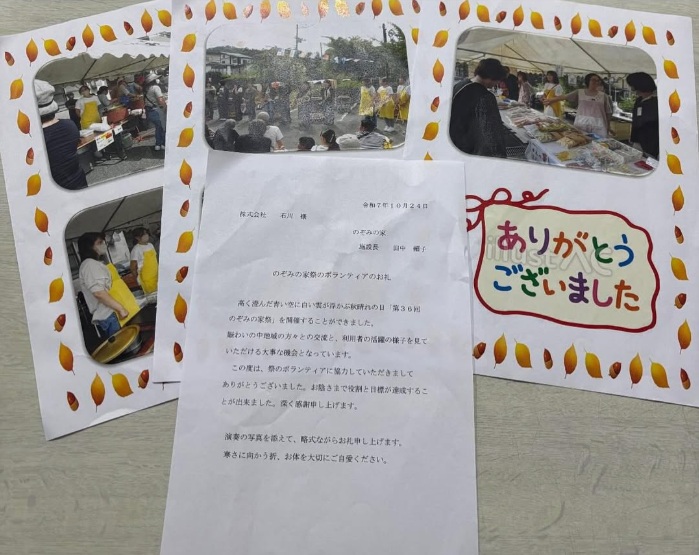 令和7年10月24日
株式会社 石川 様
のぞみの家
施設長 田中 曜子
のぞみの家祭のボランティアのお礼
高く澄んだ青い空に白い雲が浮かぶ秋晴れの日「第36回
のぞみの家祭」を開催することができました。
賑わいの中地域の方々との交流と、利用者の活躍の様子を見て
いただける大事な機会となっています。
この度は、祭のボランティアに協力していただきまして
ありがとうございました。お陰さまで役割と目標が達成するこ
とが出来ました。深く感謝申し上げます。
演奏の写真を添えて、略式ながらお礼申し上げます。
寒さに向かう折、お体を大切にご自愛ください。
ありがとう
ございました
illustAC